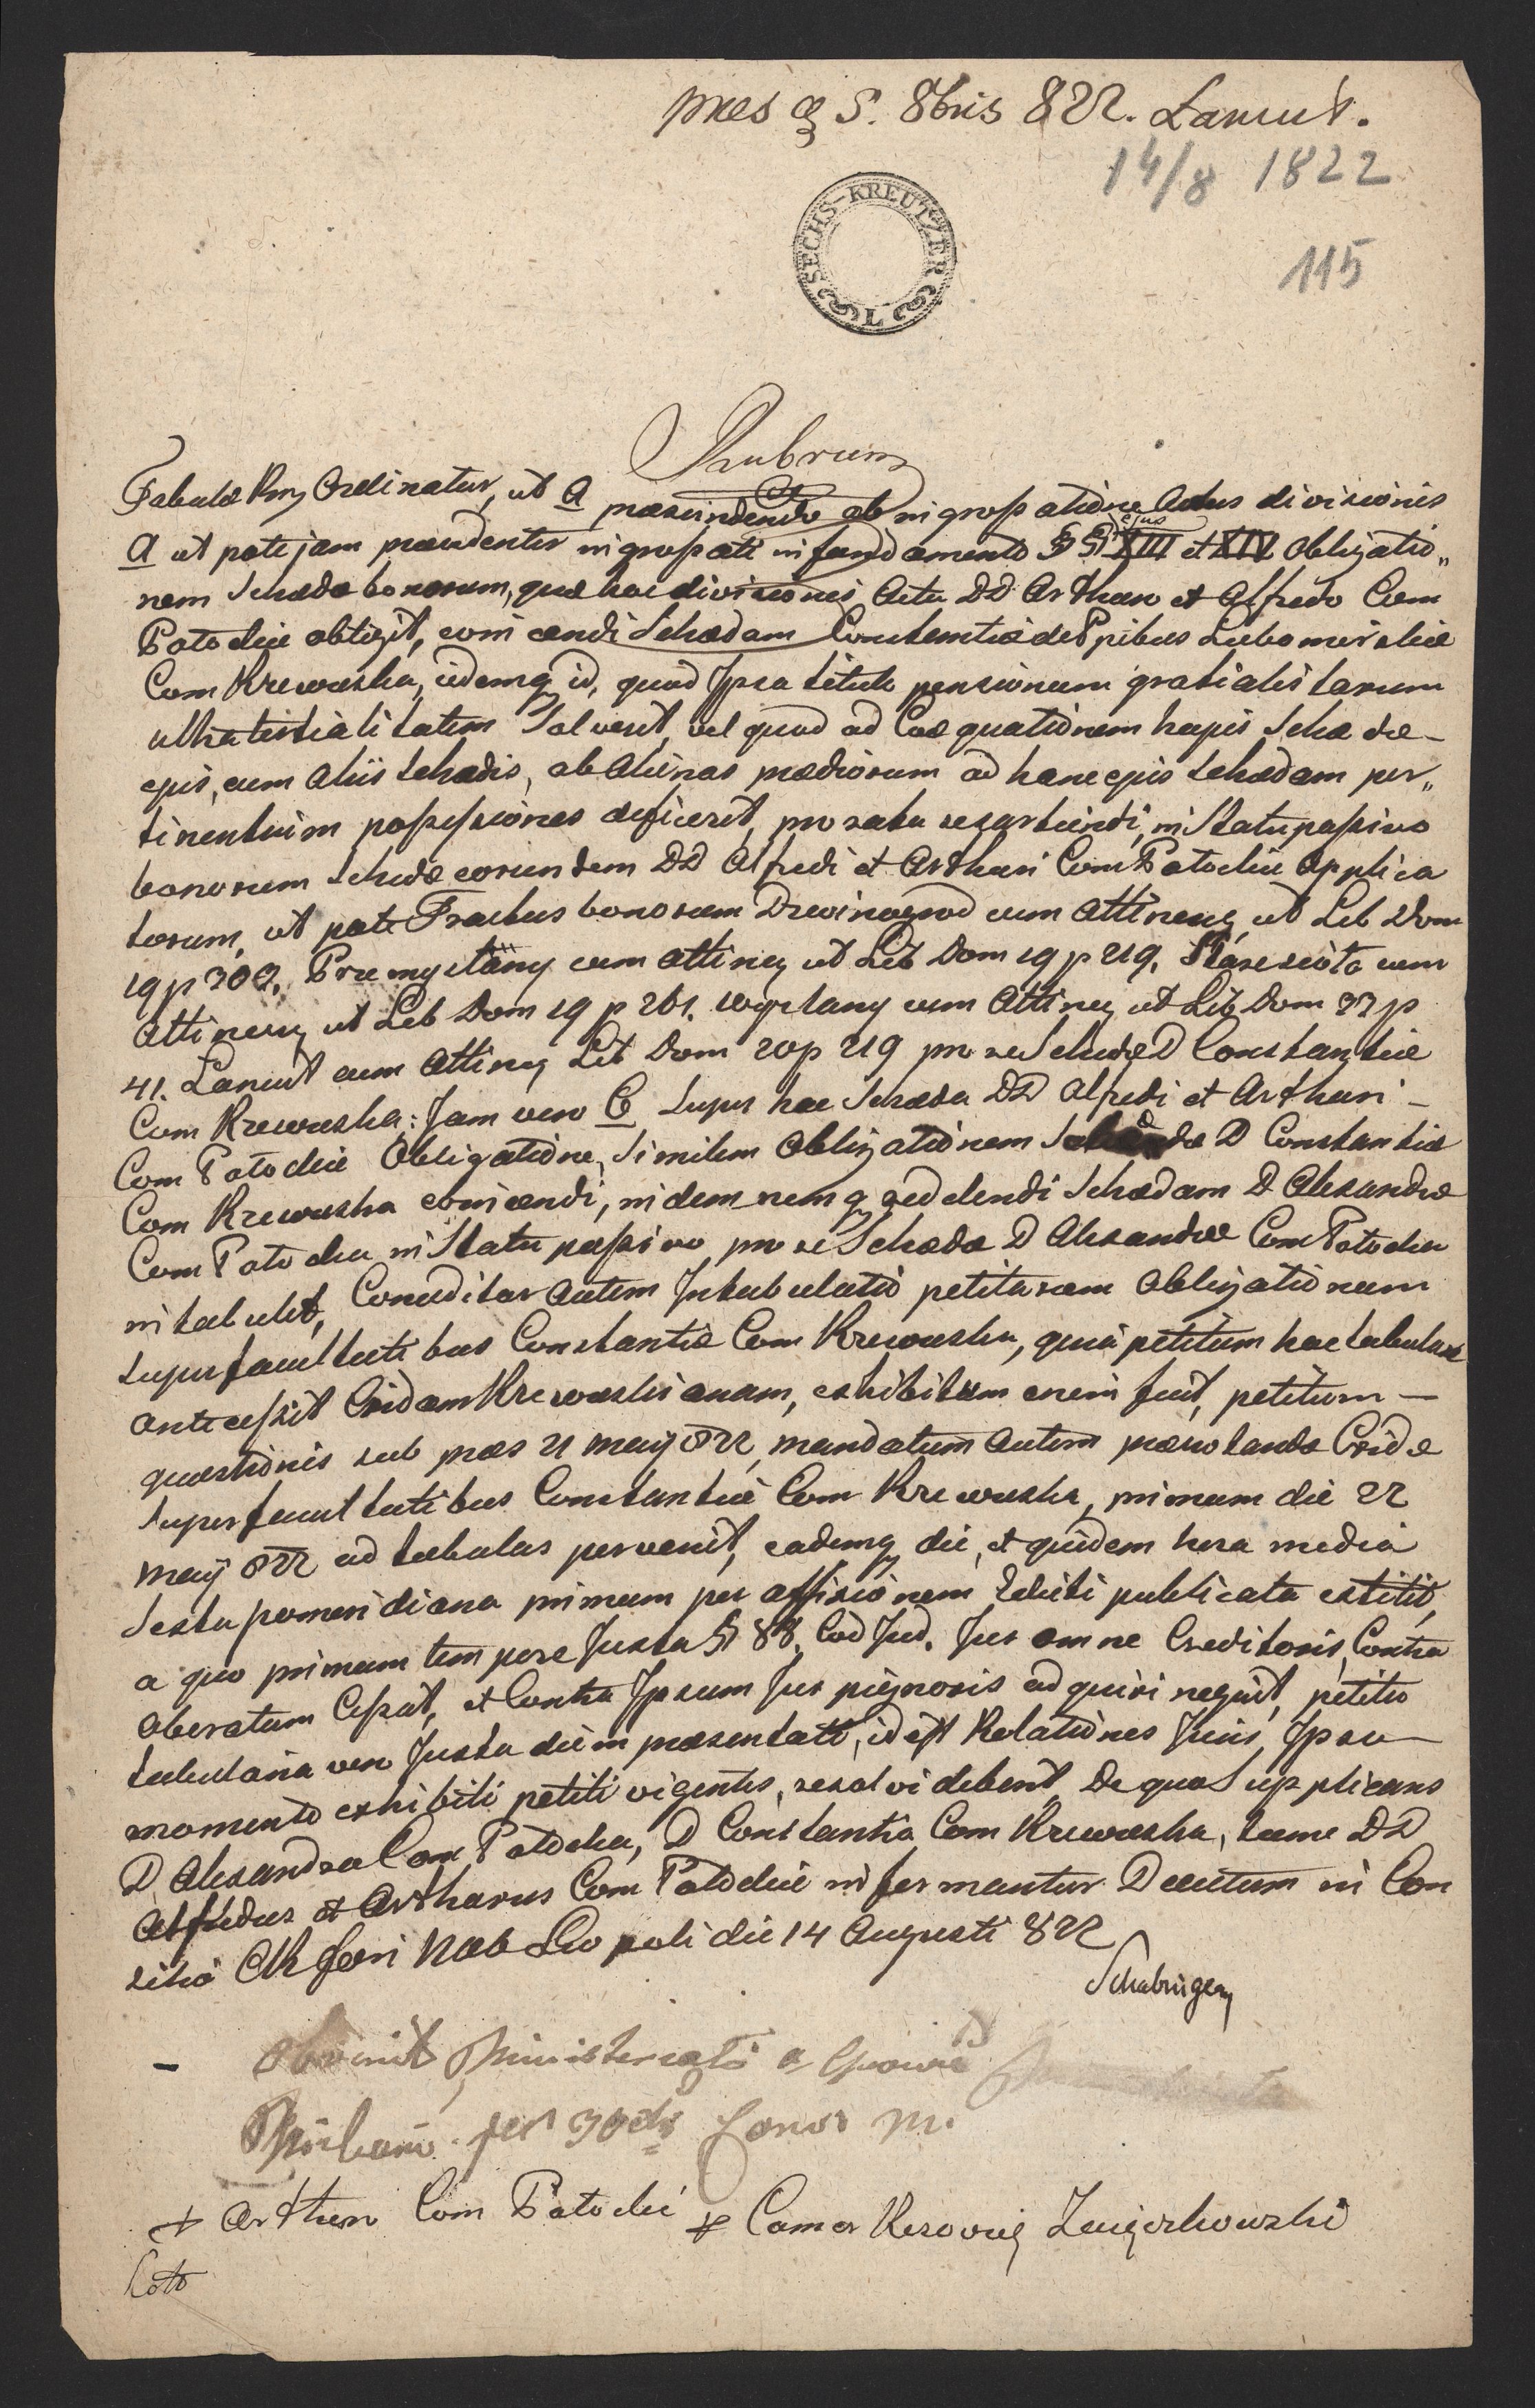 præs 5. 8bris 822. Lancut.
14/8 1822
SECHS-KREUTZER
L
115
Rubrum
Tabulæ Rnȷ Ordinatur, ut A præscindendo ab ingrossatione Actus divisionis
A ut pote jam præcedenter ingrossati in fundamento §§ ejus XIII et XIV Obligatio„
nem Schedæ bonorum, quæ hac divisionis Actu DD Arthuro et Alfredo Com
Potockie obtigit, evincendi Schædam Constantiæ de Ppibus Lubomirskie
Com Krzewuska, idemq id, quod Ipsa titulo pensionum gratialistarum
ultra tertialitatem solverit, vel quod ad Coæquationem hujus Schedæ
ejus, cum aliis Schædis, ab alienas prædiorum ad hanc ejus Schædam per„
tinentium possessiones deficeret, pro rata resartiendi, in Statu passivo
bonorum Schedæ eorundem DD Alfredi et Arthuri Com Potockie applica
torum, ut pote Tractus bonorum Drewinogrod cum attinen ut Lib Dom
19 p 300, Przemyslany cum attinen ut Lib Dom 19 p 219, Staresiota cum
Attinen ut Lib Dom 19 p 261. wyslany cum Attinen ut Lib Dom 33 p
41. Lancut cum Attinen Lib Dom 20 p 219 pro re Schedæ D Constantiæ
Com Krzewuska: Jam vero C super hac Schæda DD Alfredi et Arthuri
Com Potockie Obligatione, similem Obligationem Schædæ D Constantiæ
Com Krzewuska evincendi, indemnemq reddendi Schædam D Alexandræ
Com Potocka in Statu passivo pro re Schedæ D Alexandræ Com Potocka
intabulet, Conceditur autem Intabulatio petitarum Obligationum
super facultatibus Constantiæ Com Krzewuska, quia petitum hac tabulare
antecessit Cridam Krzewuskianam, exhibitum enim fuit, petitum
quæstionis sub præs 21 maij 822, mandatum autem prænotandæ Cridæ
super facultatibus Constantiæ Com Krzewuska, primum die 22
maij 822 ad tabulas pervenit, eademq die, et quidem hora media
sexta pomeridiana primum per affixionem Edicti publicata extitit,
a quo primum tempore Juxta § 88, Cod Jud. Jus omne Creditoris, Contra
oberatum Cessat, et Contra Ipsum Jus pignoris adquiri nequit, petita
tabularia vero Juxta diem præsentati, id est Relationes Juris, Ipso
momento exhibiti petiti vigentes, resolvi debent. De quo Supplicans
D Alexandra Com Potocka, D Constantia Com Krzewuska, tum DD
Alfredus et Arthurus Com Potockie informantur. Decretum in Con
silio CR fori Nob Leopoli die 14 Augusti 822
Schabinger
per 30 dies
+ Arthuro Com Potocki